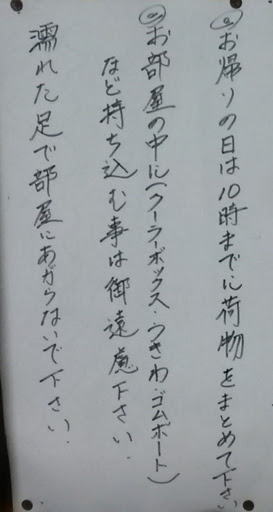 ◎お帰りの日は10時までに荷物をまとめて下さい
◎お部屋の中に(クーラーボックス・うきわ・ゴムボート)
など持ち込む事は御遠慮下さい.
濡れた足で部屋にあがらないで下さい.